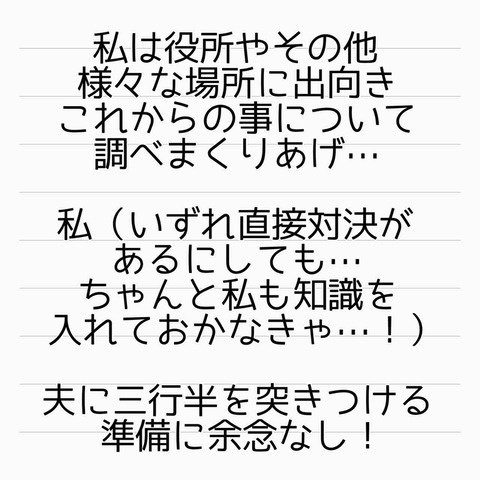 私は役所やその他
様々な場所に出向き
これからの事について
調べまくりあげ…
私（いずれ直接対決が
あるにしても…
ちゃんと私も知識を
入れておかなきゃ…！）
夫に三行半を突きつける
準備に余念なし！